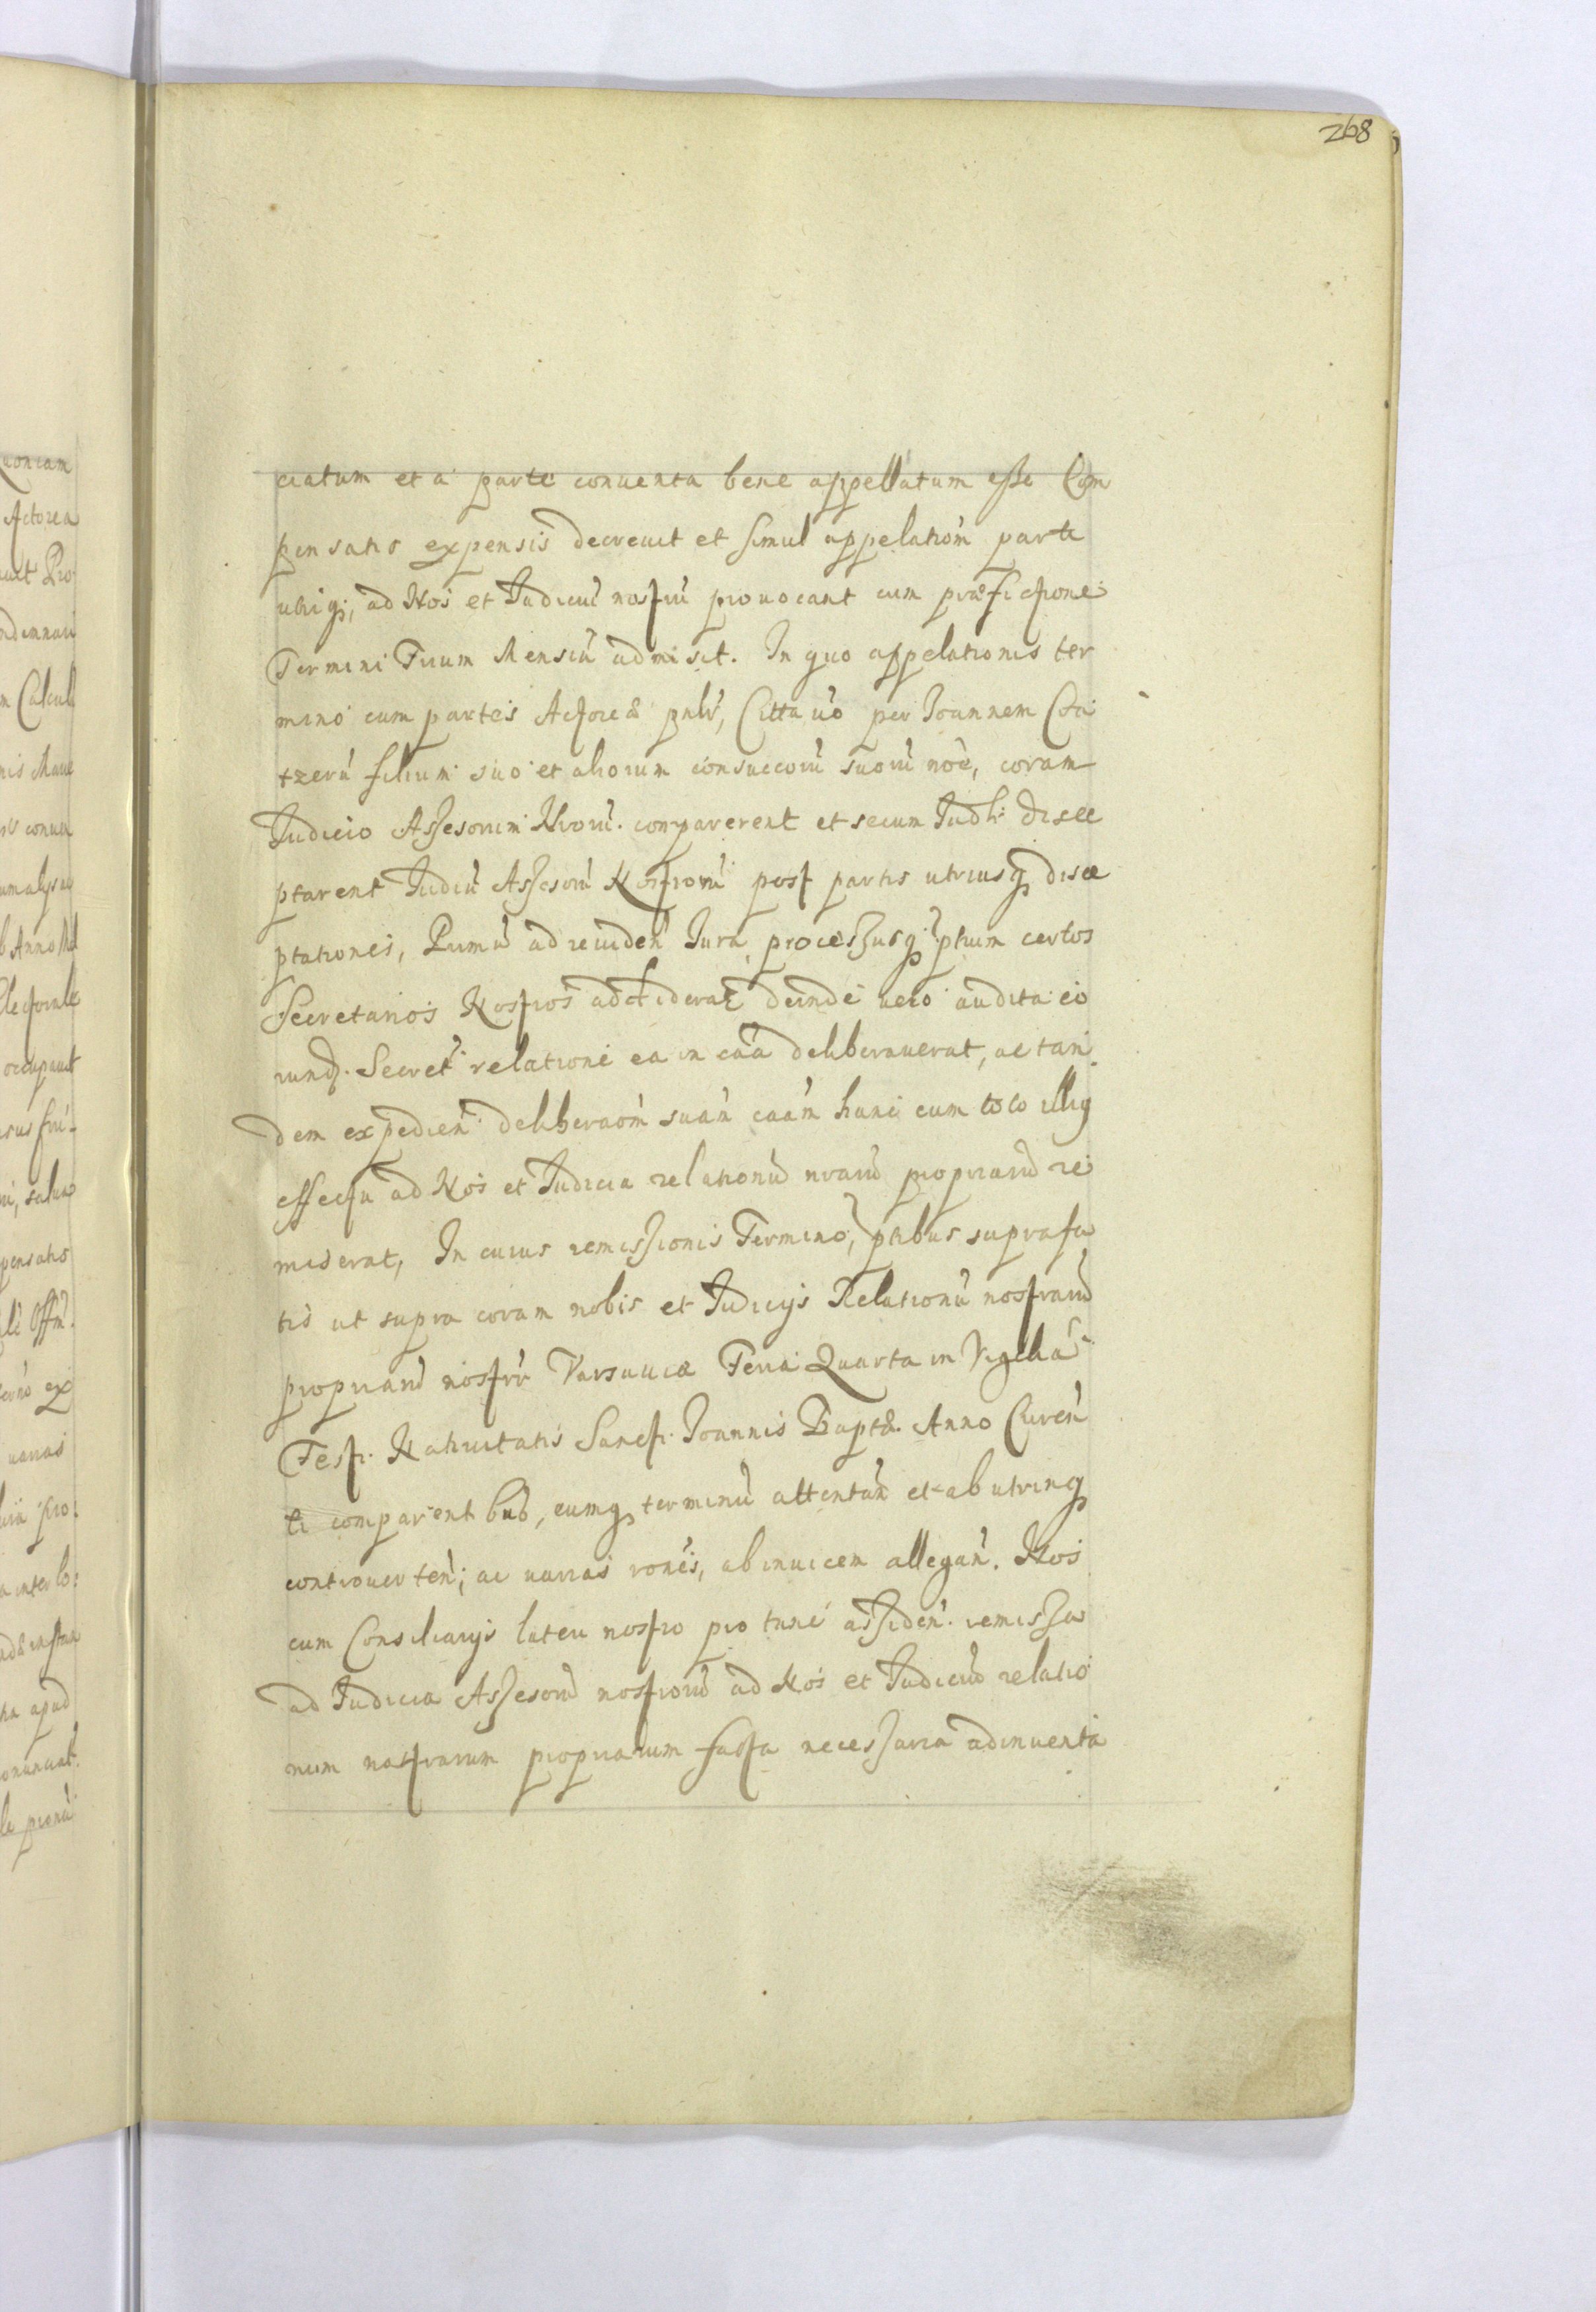 268
ciatum et a parte conuenta bene appellatum esse Com
pensatis expensis decreuit et simul appelationẽ parti
utriq;, ad Nos et Iudiciũ nostrũ prouocant cum præfictione
Termini Trium Mensiũ admisit. In quo appelationis ter
mino cum parteis Actoreæ pnlr, Citta uo per Ioannem
tzerũ filium suo et aliorum consuccorũ suorũ noẽ, coram
Iudicio Assesorum Nrorũ. comparerent et secum Iudlr disce
ptarent Iudiũ Assesorũ Nostrorũ post partis utriusq disce
ptationes, Primũ ad reuidẽn Iura processusq ptium certos
Secretarios Nostros addiderat deinde uero audita eo
rund. Secret relatione ea in cãa deliberauerat, ac tan
dem expedien deliberaõm suam caãm hanc cum toto illiq
effectu ad Nos et Iudicia relationũ nrarũ propriarũ re
miserat, In cuius remissionis Termino, ptibus suprascri
tis ut supra coram nobis et Iudicijs Relationũ nostrarũ
propriarũ nostrĩs Varsauiæ Feria Quarta in Vigilia
Festi Natiuitatis Sancti Ioannis Baptæ. Anno Curen
ti comparentbus, eumq terminũ attentañ et ab utrinq
controuerteñ; ac uarias rones, ab inuicem allegañ. Nos
cum Consiliarijs lateri nostro pro tunc assideñ. remissa
ad Iudicia Assesorũ nostrorũ ad Nos et Iudiciũ relatio
num nostrarum propriarum facta necessaria adinuenta